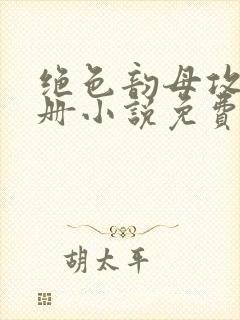 绝色韵母攻
册小说免费
胡太平